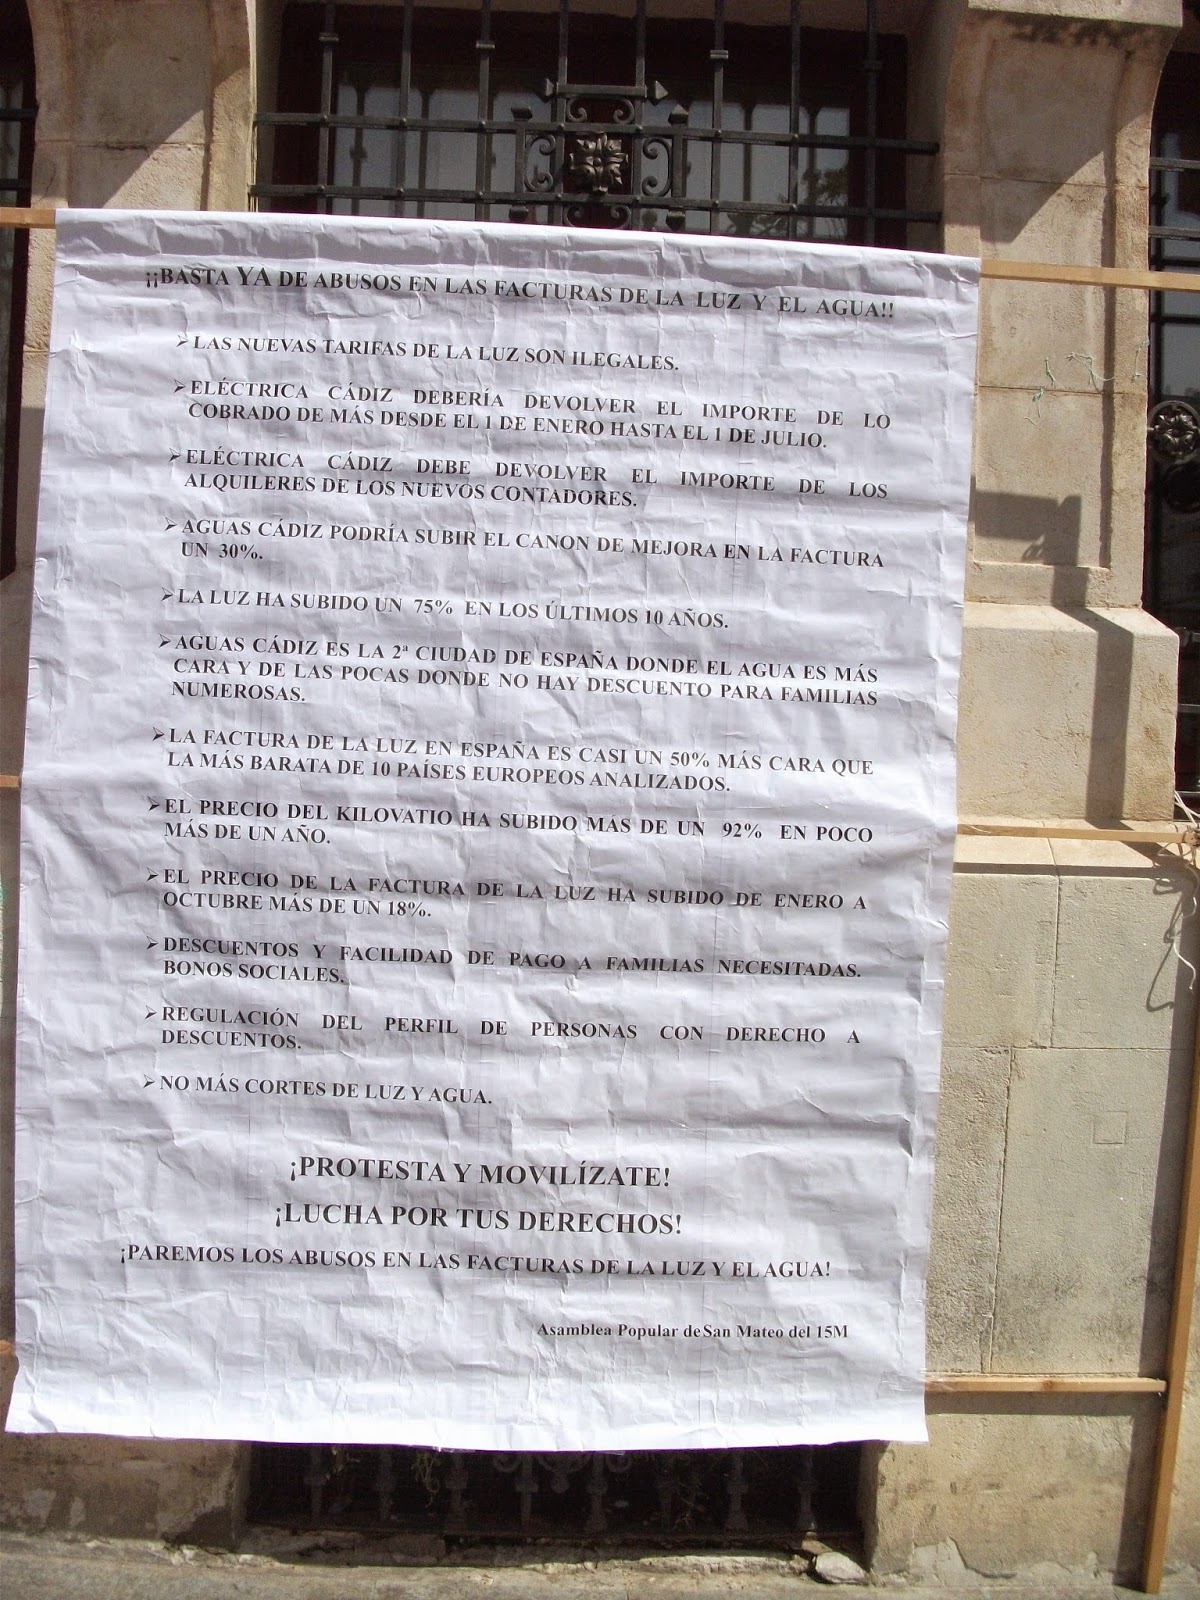 ¡¡BASTA YA DE ABUSOS EN LAS FACTURAS DE LA LUZ Y EL AGUA!!
➢LAS NUEVAS TARIFAS DE LA LUZ SON ILEGALES.
➢ELÉCTRICA CÁDIZ DEBERÍA DEVOLVER EL IMPORTE DE LO
COBRADO DE MÁS DESDE EL 1 DE ENERO HASTA EL 1 DE JULIO.
➢ELÉCTRICA CÁDIZ DEBE DEVOLVER EL IMPORTE DE LOS
ALQUILERES DE LOS NUEVOS CONTADORES.
➢AGUAS CÁDIZ PODRÍA SUBIR EL CANON DE MEJORA EN LA FACTURA
UN 30%.
➢LA LUZ HA SUBIDO UN 75% EN LOS ÚLTIMOS 10 AÑOS.
➢AGUAS CÁDIZ ES LA 2ª CIUDAD DE ESPAÑA DONDE EL AGUA ES MÁS
CARA Y DE LAS POCAS DONDE NO HAY DESCUENTO PARA FAMILIAS
NUMEROSAS.
➢LA FACTURA DE LA LUZ EN ESPAÑA ES CASI UN 50% MÁS CARA QUE
LA MÁS BARATA DE 10 PAÍSES EUROPEOS ANALIZADOS.
➢EL PRECIO DEL KILOVATIO HA SUBIDO MÁS DE UN 92% EN POCO
MÁS DE UN AÑO.
➢EL PRECIO DE LA FACTURA DE LA LUZ HA SUBIDO DE ENERO A
OCTUBRE MÁS DE UN 18%.
➢DESCUENTOS Y FACILIDAD DE PAGO A FAMILIAS NECESITADAS.
BONOS SOCIALES.
➢REGULACIÓN DEL PERFIL DE PERSONAS CON DERECHO A
DESCUENTOS.
➢NO MÁS CORTES DE LUZ Y AGUA.
¡PROTESTA Y MOVILÍZATE!
¡LUCHA POR TUS DERECHOS!
¡PAREMOS LOS ABUSOS EN LAS FACTURAS DE LA LUZ Y EL AGUA!
Asamblea Popular de San Mateo del 15M